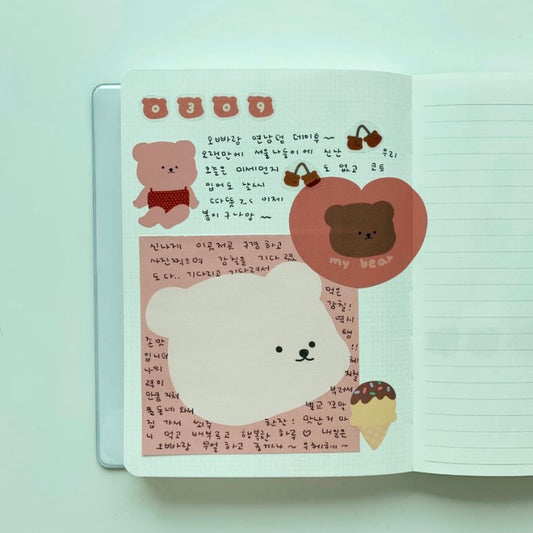 0309
오빠랑 연남덩 데이투~
오랜만에 서울나들이에 신난 우리
오늘은 미세먼지도 없고 코트
입어도 날씨
따뜻 이제
봄이구나앙~
my bear
신나게 이곳저곳 구경하고
사진찍으며 감칠을 기다렸
도다.. 기다리고 기다려서
먹은
감칠!
역시
간맛
입니더 !!
나의
력이
부러서
활동네 와서 벌교 꼬막
집 가서 한잔! 맛난거 마
니 먹고 배부르고 행복한 하루♡ 내일은
오빠랑 무얼 하고 놀까나~ 우헤헤~